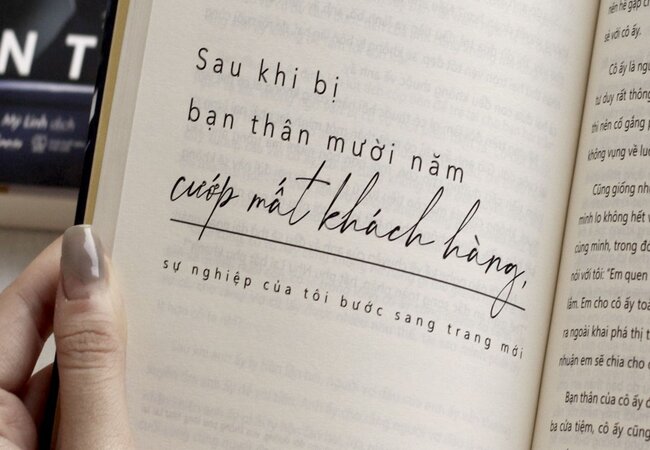 NT
My Linh dịch
Sau khi bị
bạn thân mười năm
cướp mất khách hàng,
sự nghiệp của tôi bước sang trang mới
nên hề gặp
sẻ với cô ấy.
Cô ấy là
tư duy rất thông
thì nên cố gắng
không vụng về
Cũng giống
mình lo không hết
cùng mình, trong đó
nói với tôi: "Em quen
lắm. Em cho cô ấy
ra ngoài khai phá thị
nhuận em sẽ chia cho
Bạn thân của cô ấy
ba cửa tiệm, cô ấy cũng